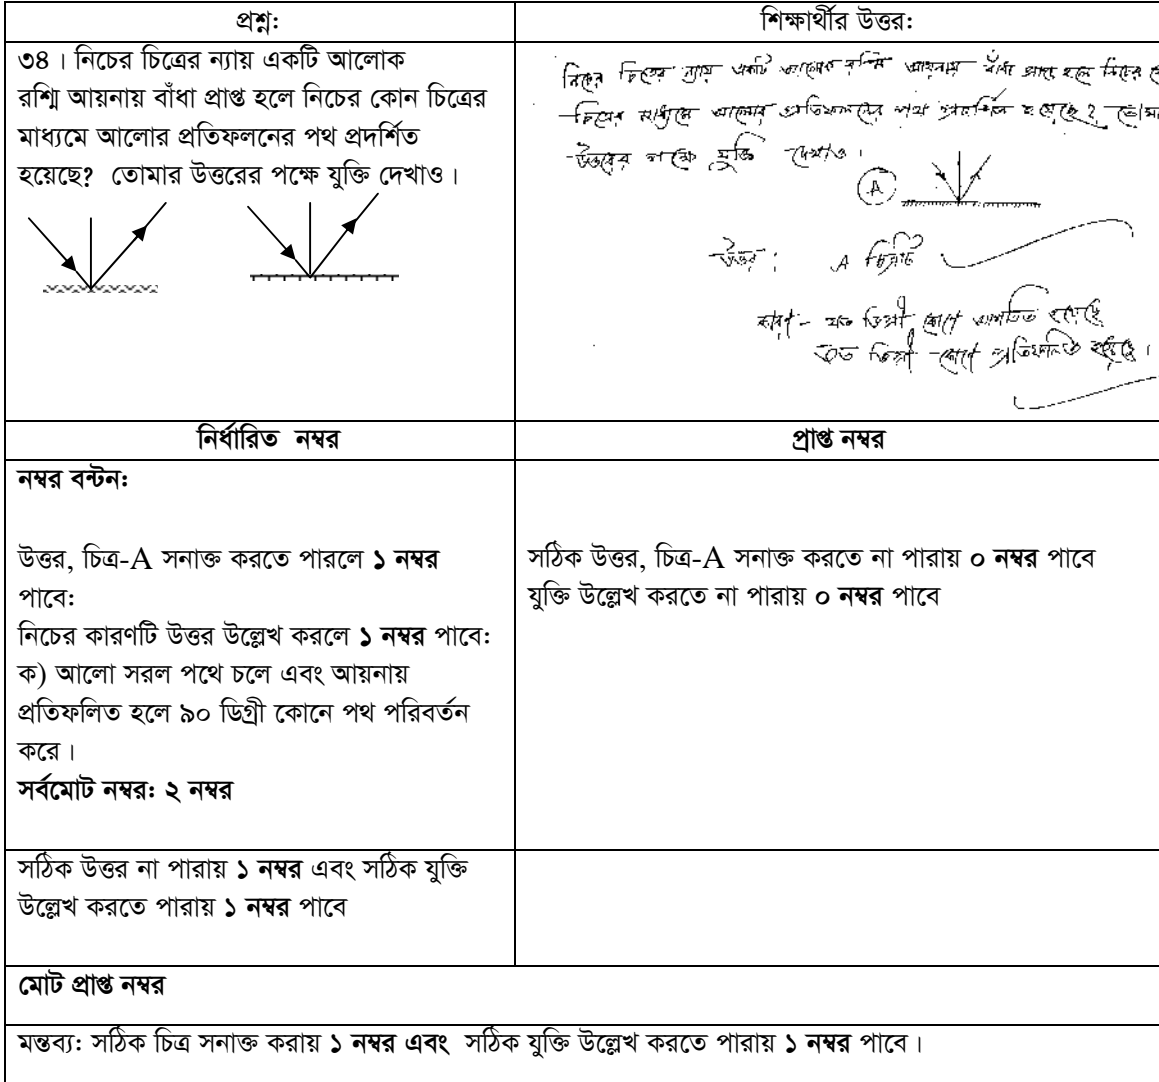 প্রশ্ন:
শিক্ষার্থীর উত্তর:
৩৪। নিচের চিত্রের ন্যায় একটি আলোক
রশ্মি আয়নায় বাঁধা প্রাপ্ত হলে নিচের কোন চিত্রের
মাধ্যমে আলোর প্রতিফলনের পথ প্রদর্শিত
হয়েছে? তোমার উত্তরের পক্ষে যুক্তি দেখাও।
নিচের চিত্রের ন্যায় একটি আলোক রশ্মি আয়নায় বাঁধা প্রাপ্ত হলে নিচের
চিত্রের মাধ্যমে আলোর প্রতিফলনের পথ প্রদর্শিত হয়েছে?
উত্তরের পক্ষে যুক্তি দেখাও।
A
উত্তর: A চিত্রটি
কারণ- যত ডিগ্রী কোণে আপতিত হয়েছে
তত ডিগ্রী কোণে প্রতিফলিত হয়েছে।
নির্ধারিত নম্বর
প্রাপ্ত নম্বর
নম্বর বন্টন:
উত্তর, চিত্র-A সনাক্ত করতে পারলে ১ নম্বর
পাবে:
নিচের কারণটি উত্তর উল্লেখ করলে ১ নম্বর পাবে:
ক) আলো সরল পথে চলে এবং আয়নায়
প্রতিফলিত হলে ৯০ ডিগ্রী কোনে পথ পরিবর্তন
করে।
সর্বমোট নম্বর: ২ নম্বর
সঠিক উত্তর, চিত্র-A সনাক্ত করতে না পারায় ০ নম্বর পাবে
যুক্তি উল্লেখ করতে না পারায় ০ নম্বর পাবে
সঠিক উত্তর না পারায় ১ নম্বর এবং সঠিক যুক্তি
উল্লেখ করতে পারায় ১ নম্বর পাবে
মোট প্রাপ্ত নম্বর
মন্তব্য: সঠিক চিত্র সনাক্ত করায় ১ নম্বর এবং সঠিক যুক্তি উল্লেখ করতে পারায় ১ নম্বর পাবে।